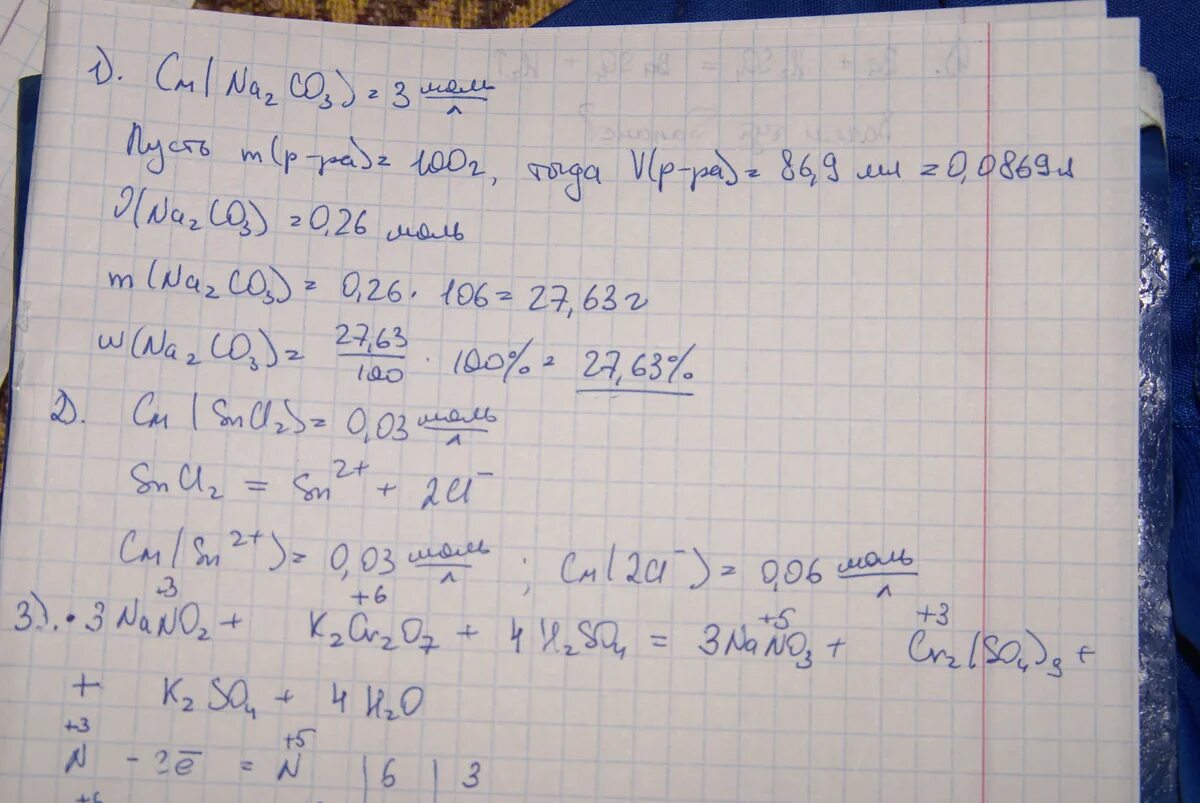 1). Cм(Na₂CO₃) = 3 моль/л
Пусть m(р-ра) = 100г, тогда V(р-ра) = 86,9 мл = 0,0869л
ν(Na₂CO₃) = 0,26 моль
m(Na₂CO₃) = 0,26 · 106 = 27,63г
w(Na₂CO₃) = 27,63/100 · 100% = 27,63%
2). Cм(SnCl₂) = 0,03 моль/л
SnCl₂ = Sn²⁺ + 2Cl⁻
Cм(Sn²⁺) = 0,03 моль/л ; Cм(2Cl⁻) = 0,06 моль/л
+3 +6 +5 +3
3). · 3NaNO₂ + K₂Cr₂O₇ + 4H₂SO₄ = 3NaNO₃ + Cr₂(SO₄)₃ +
+ K₂SO₄ + 4H₂O
+3 +5
N - 2ē = N | 6 | 3
+6